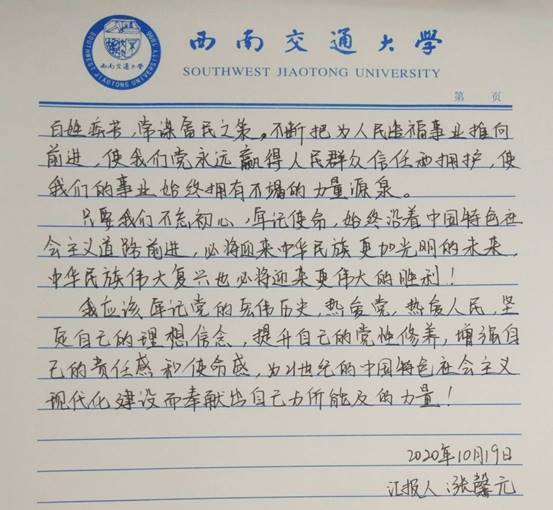 西南交通大学
SOUTHWEST JIAOTONG UNIVERSITY
第 页
百姓疾苦,常谋富民之策。不断把为人民造福事业推向
前进,使我们党永远赢得人民群众信任和拥护,使
我们的事业始终拥有不竭的力量源泉。
只要我们不忘初心、牢记使命,始终沿着中国特色社
会主义道路前进,必将迎来中华民族更加光明的未来,
中华民族伟大复兴也必将迎来更伟大的胜利!
我应该牢记党的宏伟历史,热爱党,热爱人民,坚
定自己的理想信念,提升自己的党性修养,增强自
己的责任感和使命感,为21世纪的中国特色社会主义
现代化建设而奉献出自己力所能及的力量!
2020年10月19日
汇报人:张馨元